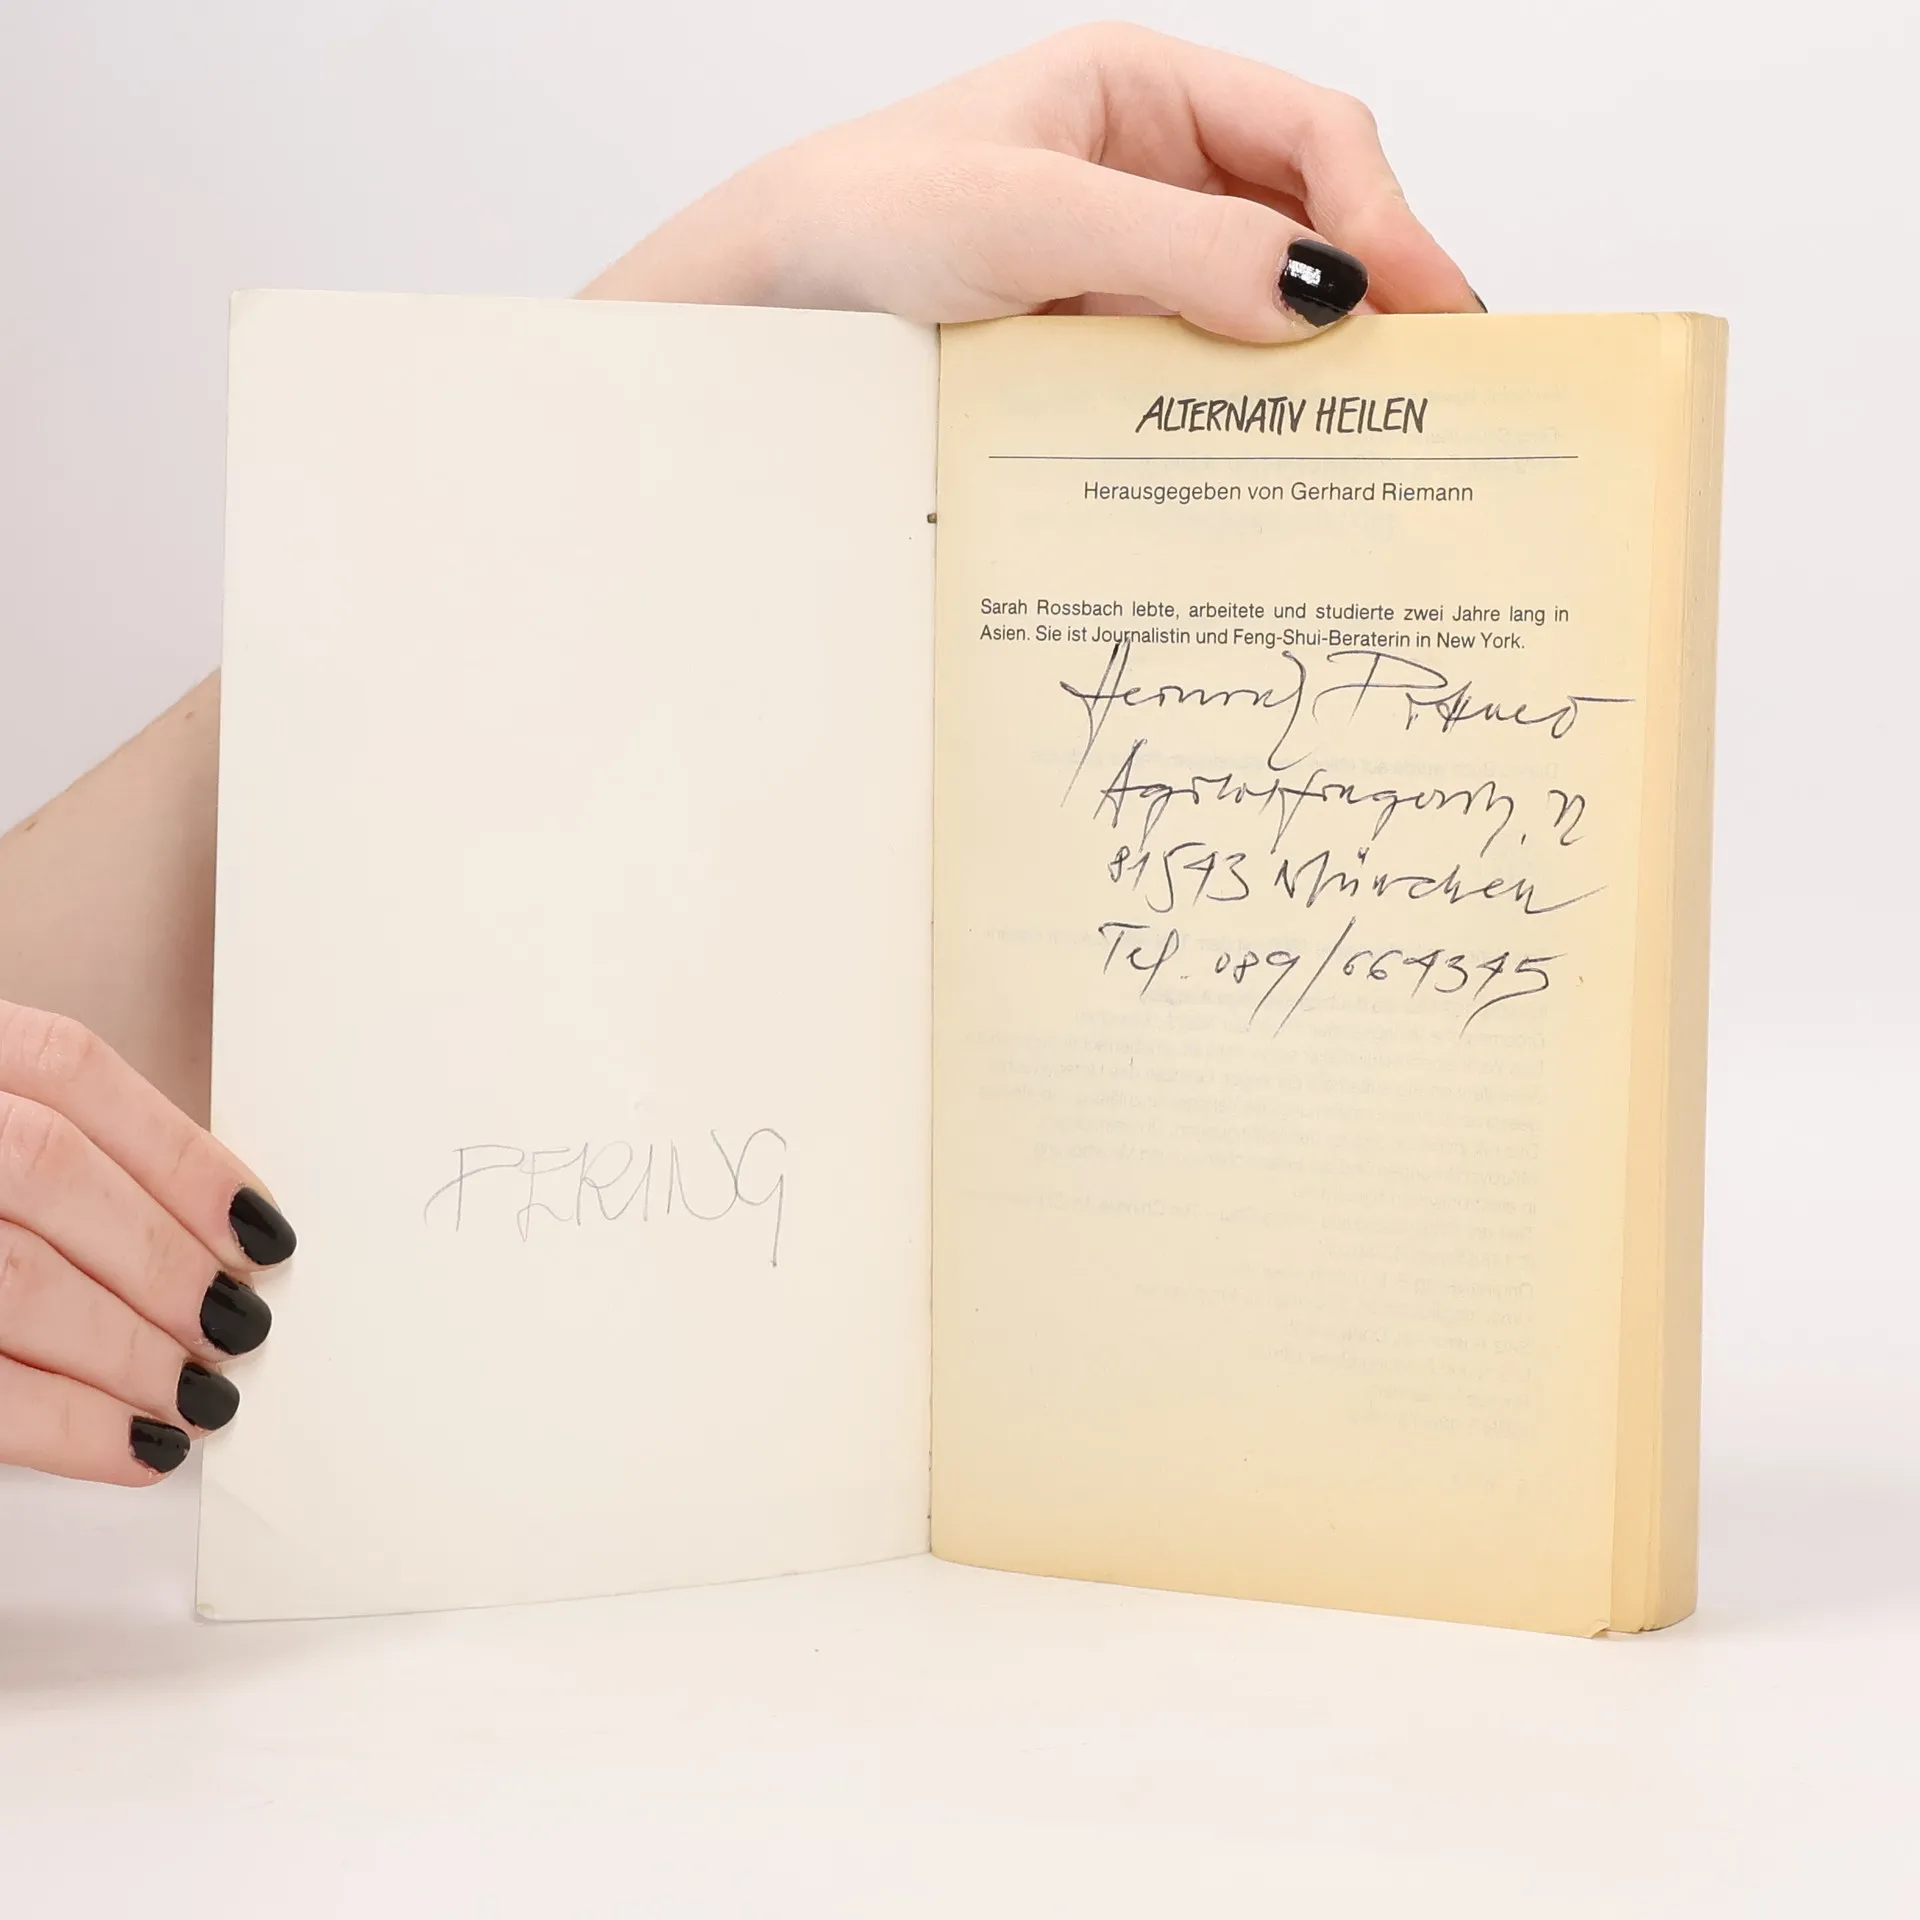 PERING
ALTERNATIV HEILEN
Herausgegeben von Gerhard Riemann
Sarah Rossbach lebte, arbeitete und studierte zwei Jahre lang in
Asien. Sie ist Journalistin und Feng-Shui-Beraterin in New York.
Heinrich
81543 München
Tel. 089/664345